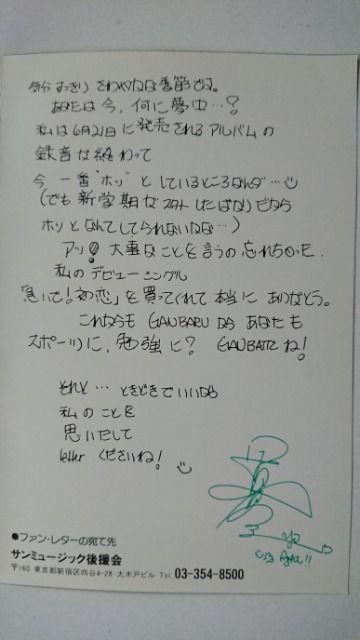 気分すっきりさわやかな季節です。
あなたは今、何に夢中…?
私は6月21日に発売されるアルバムの
録音が終わって
今一番"ホッ"としているところなんダ…
(でも新学期がスタートしたばかりだから
ホッとなんてしてられないなぁ…)
アッ!大事なことを言うの忘れちゃった。
私のデビューシングル
急いで!初恋」を買ってくれて本当にありがとう。
これからも GANBARUから あなたも
スポーツに、勉強に? GANBATTEね!
それと…ときどきでいいから
私のことを
思いだして
letter くださいね!
●ファン・レターの宛て先
サンミュージック後援会
〒160 東京都新宿区四谷4-28 大木戸ビル Tel. 03-354-8500